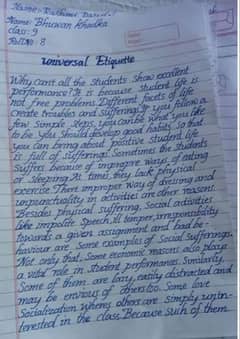 Name: Bhuwan Khadka
class: 9
Roll No: 8
Universal Etiquette
Why can't all the students show excellent
performance? It is because student life is
not free problems. Different facets of life
create troubles and sufferings. If you follow a
few simple steps, you can be what you like
to be. You should develop good habits. So that
you can bring about positive student life
is full of sufferings. Sometimes the students
suffers because of improper ways of eating
or sleeping. At times, they lack physical
exercise. There improper way of dressing and
unpunctuality in activities are other reasons.
Besides physical suffering, Social activities
like impolite speech, ill temper, irresponsibility
towards a given assignment and bad be-
haviour are some examples of Social sufferings.
Not only that, Some economic also plays
a vital role in student performances. Similarly,
Some of them are lazy, easily distracted and
may be envious of others too. Some love
Socialization wheres others are simply unin-
terested in the class. Because such of them